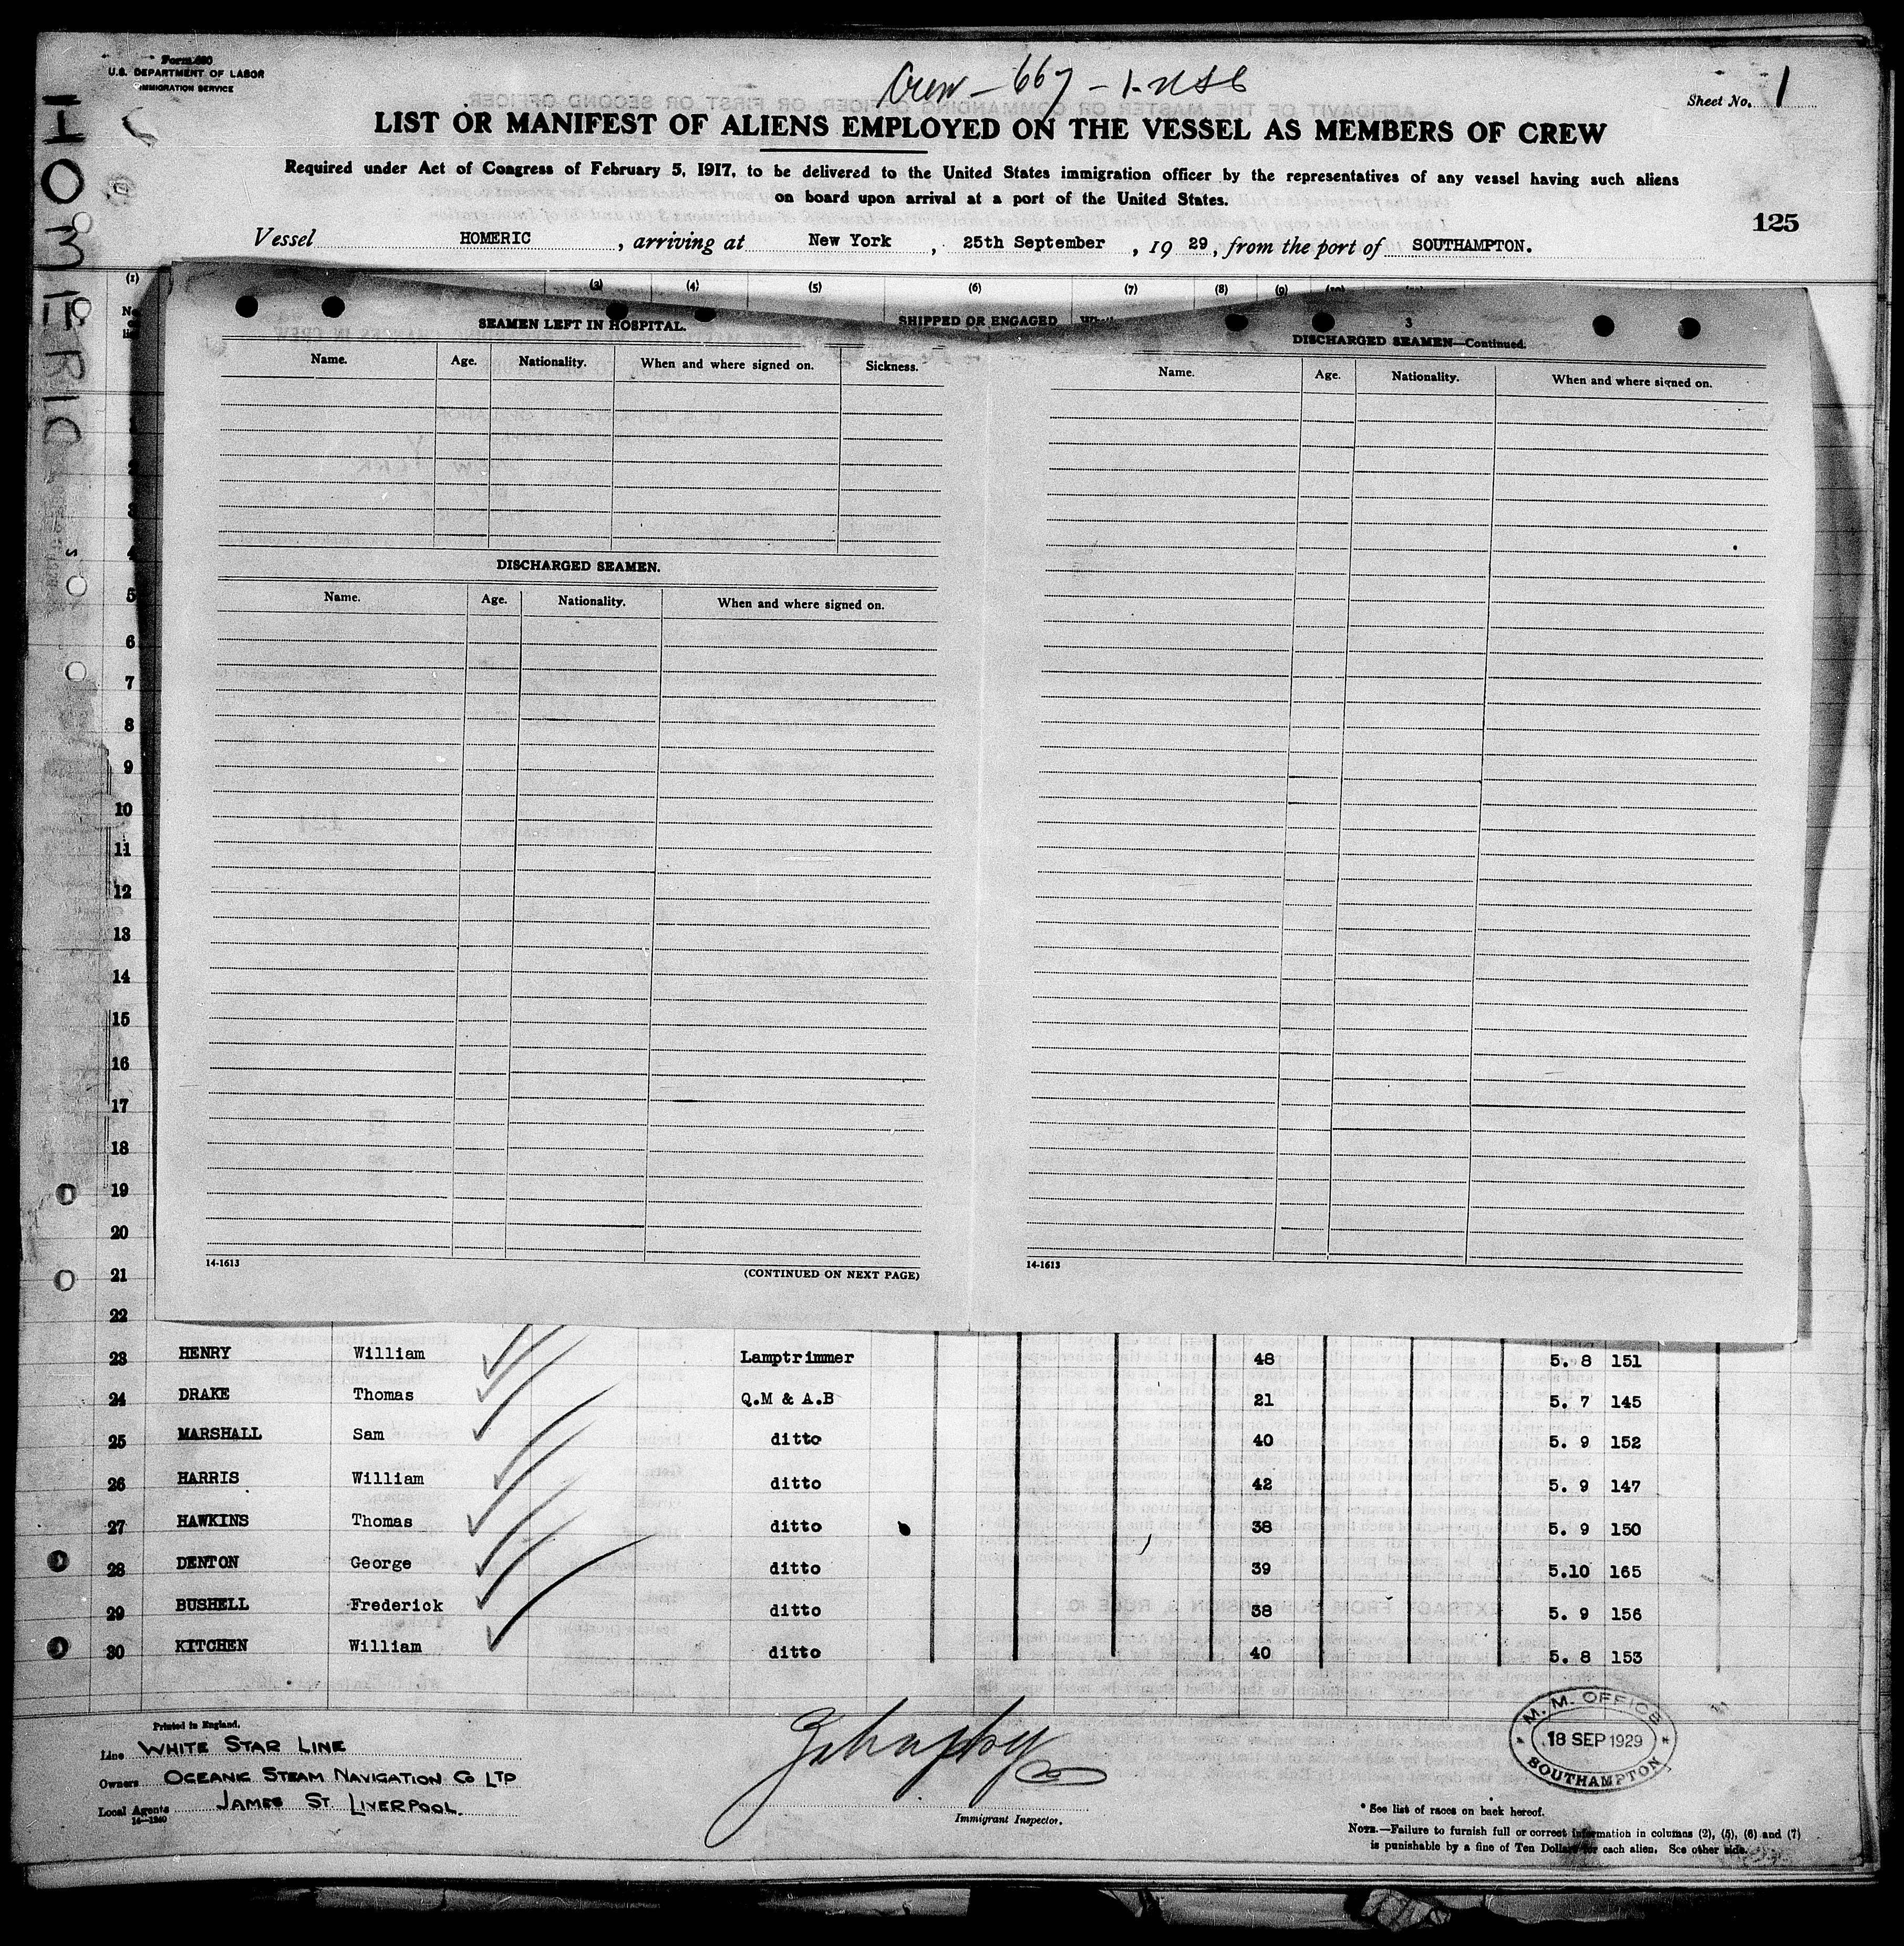 Form 680
U.S. DEPARTMENT OF LABOR
IMMIGRATION SERVICE
Crew - 667 - 1-USC
Sheet No. 1
LIST OR MANIFEST OF ALIENS EMPLOYED ON THE VESSEL AS MEMBERS OF CREW
Required under Act of Congress of February 5, 1917, to be delivered to the United States immigration officer by the representatives of any vessel having such aliens
on board upon arrival at a port of the United States.
125
Vessel HOMERIC, arriving at New York, 25th September, 19 29, from the port of SOUTHAMPTON.
HOMERIC
(1) (3) (4) (5) (6) (7) (8) (9)
SHIPPED OR ENGAGED
SEAMEN LEFT IN HOSPITAL.
Name. Age. Nationality. When and where signed on. Sickness.
DISCHARGED SEAMEN.
Name. Age. Nationality. When and where signed on.
14-1613
(CONTINUED ON NEXT PAGE)
3
DISCHARGED SEAMEN—Continued.
Name. Age. Nationality. When and where signed on.
14-1613
2
3
4
5
6
7
8
9
10
11
12
13
14
15
16
17
18
19
20
21
22
23 HENRY William Lamptrimmer 48 5. 8 151
24 DRAKE Thomas Q.M & A.B 21 5. 7 145
25 MARSHALL Sam ditto 40 5. 9 152
26 HARRIS William ditto 42 5. 9 147
27 HAWKINS Thomas ditto 38 5. 9 150
28 DENTON George ditto 39 5.10 165
29 BUSHELL Frederick ditto 38 5. 9 156
30 KITCHEN William ditto 40 5. 8 153
Printed in England.
Line WHITE STAR LINE
Owners OCEANIC STEAM NAVIGATION Co LTD
Local Agents JAMES ST. LIVERPOOL.
14—1240
Immigrant Inspector.
M. M. OFFICE
18 SEP 1929
SOUTHAMPTON
* See list of races on back hereof.
NOTE.—Failure to furnish full or correct information in columns (2), (5), (6) and (7)
is punishable by a fine of Ten Dollars for each alien. See other side.